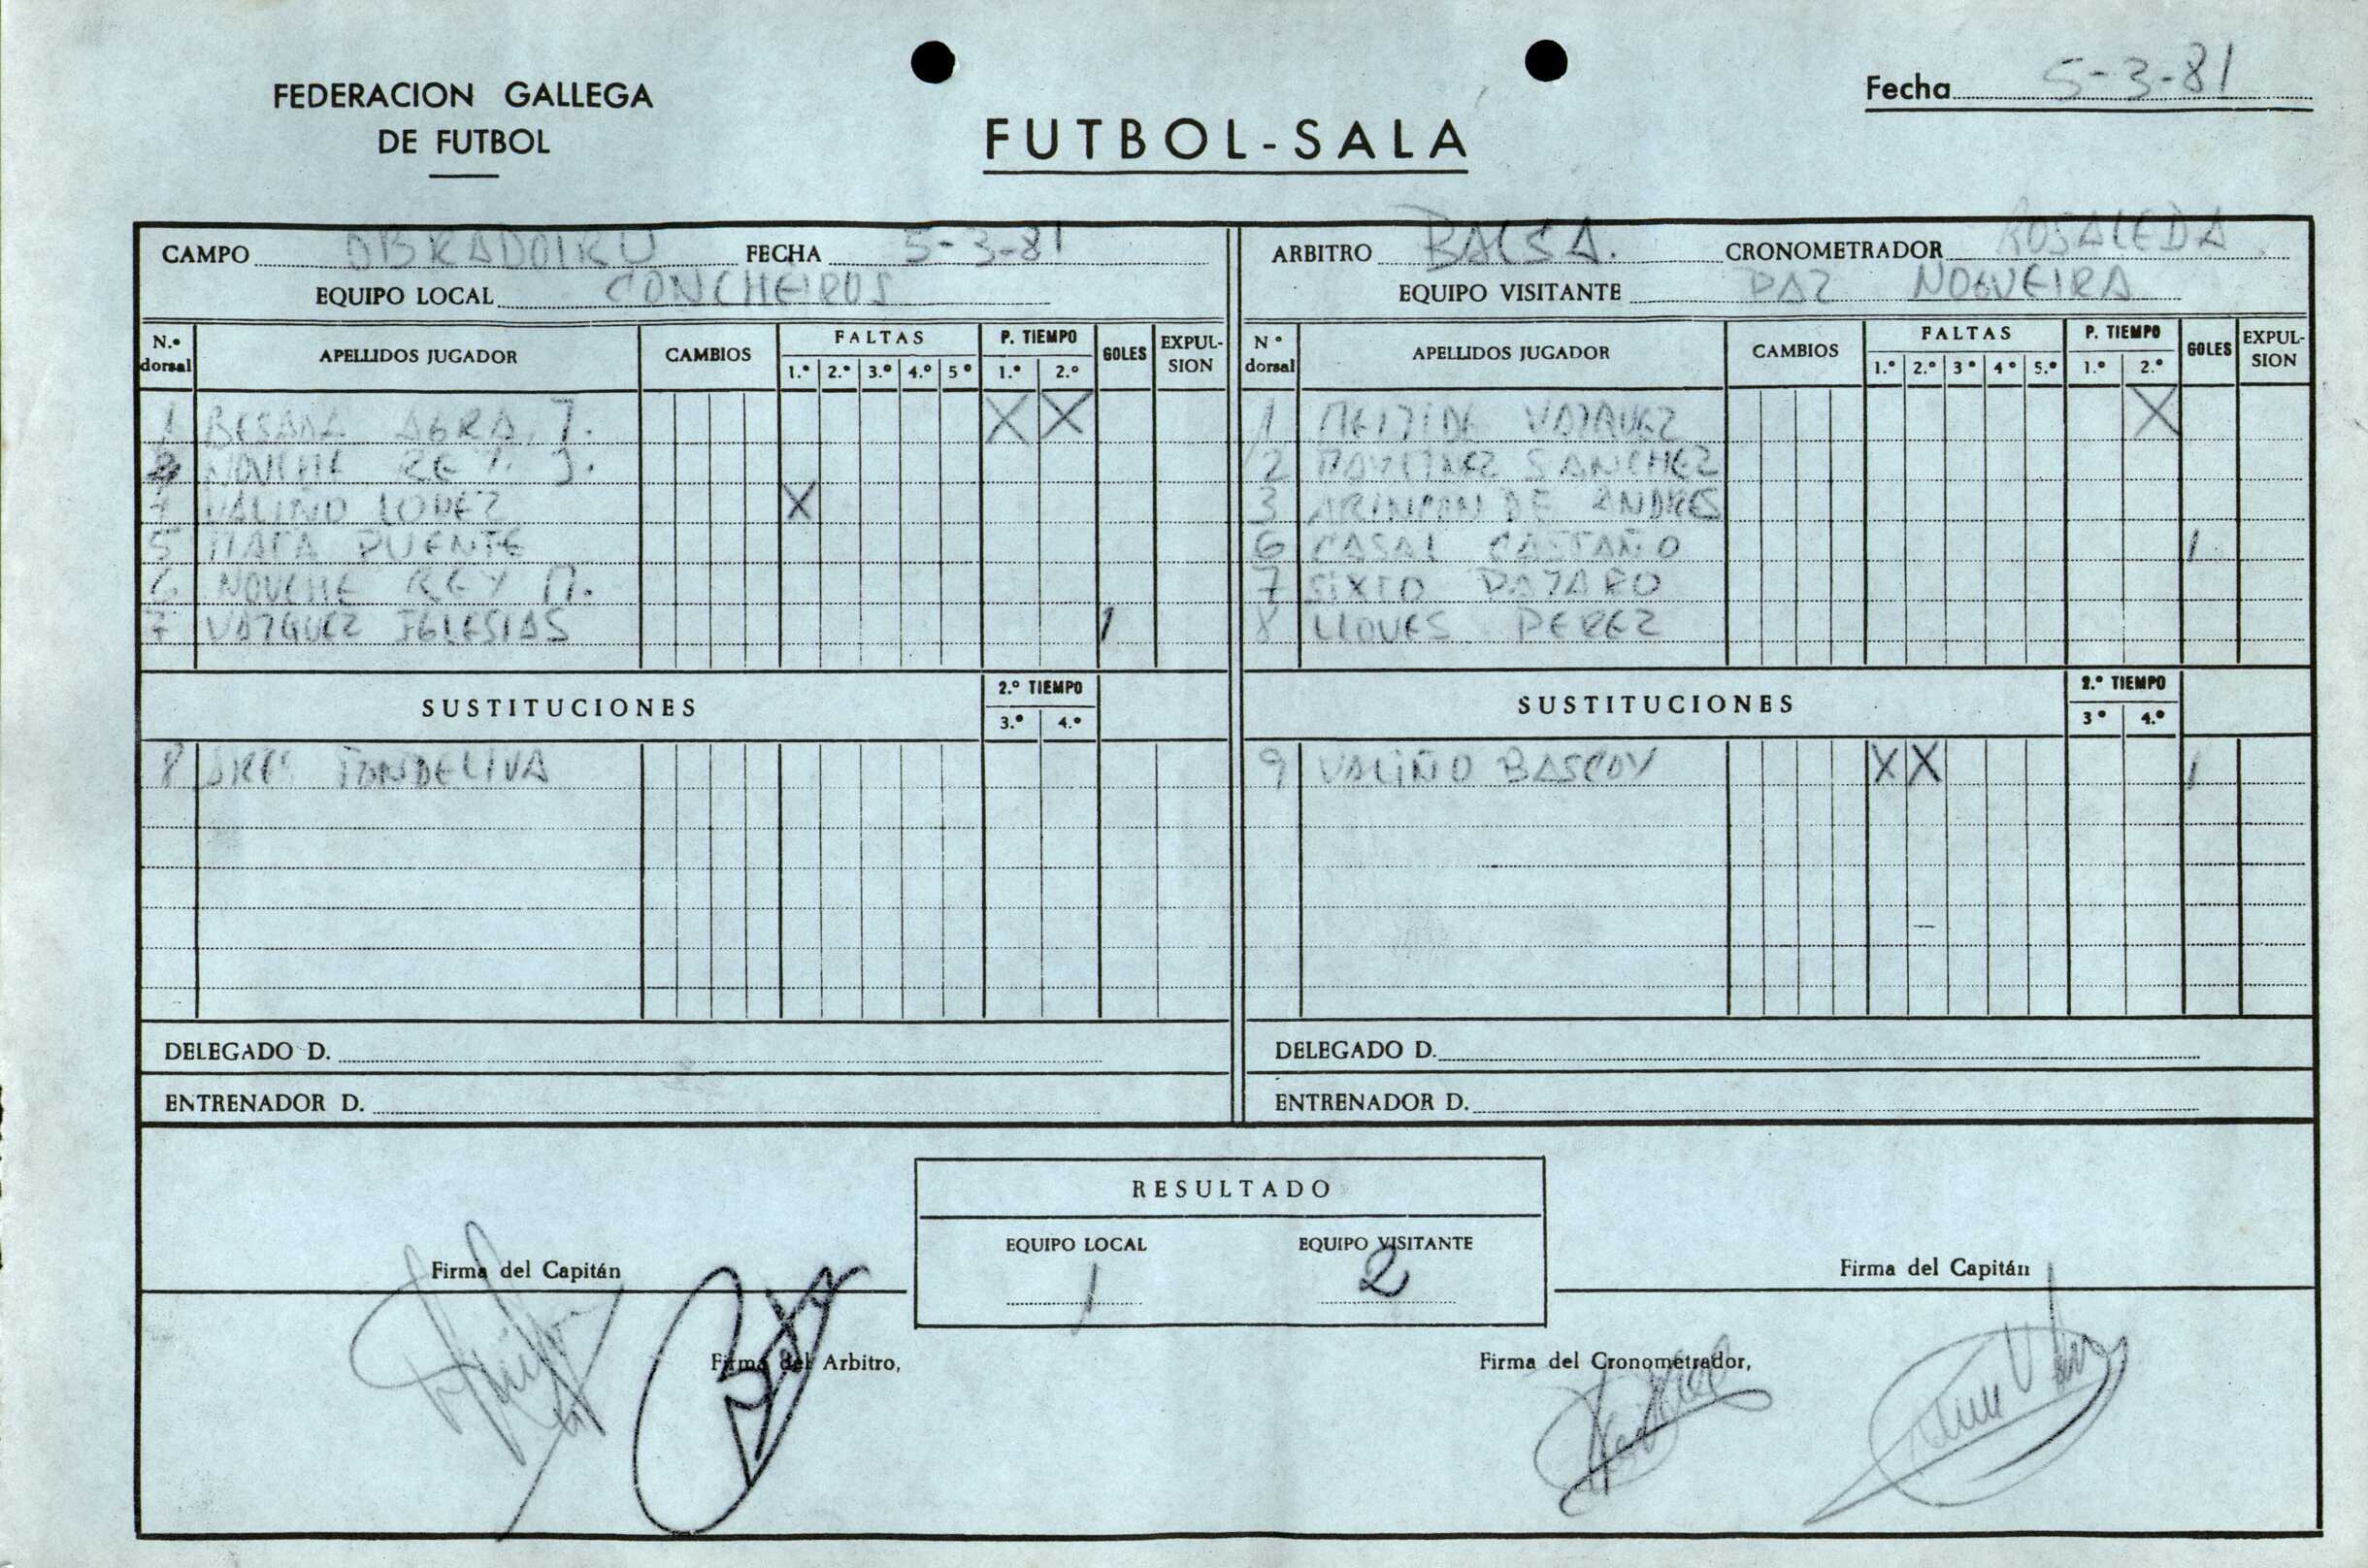 FEDERACION GALLEGA
DE FUTBOL
FUTBOL-SALA
Fecha 5-3-81
CAMPO OBRADOIRO FECHA 5-3-81
EQUIPO LOCAL CONCHEIROS
N.º dorsal APELLIDOS JUGADOR CAMBIOS FALTAS 1.º 2.º 3.º 4.º 5º P. TIEMPO 1.º 2.º GOLES EXPULSION
1 BESADA AGRA, J. X X
NOUCHE REY. J.
4 VALIÑO LOPEZ X
5 MATA PUENTE
6 NOUCHE REY M.
7 VAZQUEZ IGLESIAS 1
SUSTITUCIONES 2.º TIEMPO 3.º 4.º
8 ARES FANDELIVA
DELEGADO D.
ENTRENADOR D.
ARBITRO BALSA. CRONOMETRADOR ROSALEDA
EQUIPO VISITANTE PAZ NOGUEIRA
Nº dorsal APELLIDOS JUGADOR CAMBIOS FALTAS 1.º 2.º 3º 4º 5.º P. TIEMPO 1.º 2.º GOLES EXPULSION
1 MEIJIDE VAZQUEZ X
2 MARTINEZ SANCHEZ
3 DE ANDRES
6 CASAL CASTAÑO 1
7 SIXTO PAJARO
8 LLOVES PEREZ
SUSTITUCIONES 2.º TIEMPO 3º 4.º
9 VALIÑO BASCOY X X 1
DELEGADO D.
ENTRENADOR D.
RESULTADO
EQUIPO LOCAL EQUIPO VISITANTE
1 2
Firma del Capitán
Firma del Capitán
Firma del Arbitro,
Firma del Cronometrador,